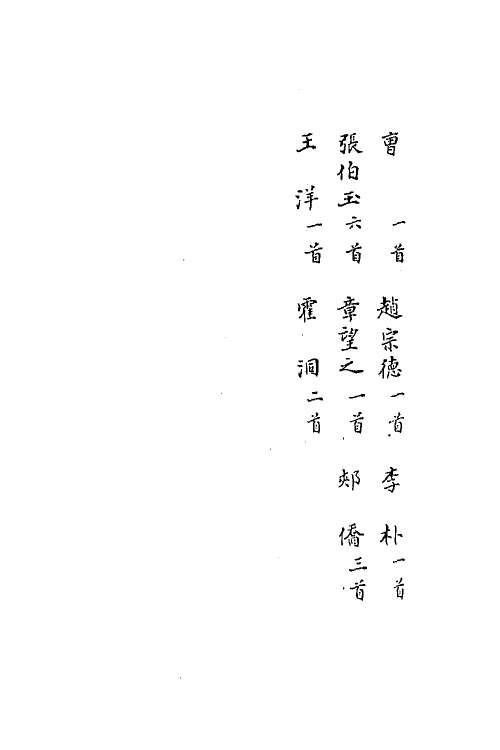 曺　　一首　趙宗德一首　李　朴一首
張伯玉六首　章望之一首　郟　僑三首
王　洋一首　霍　洞二首